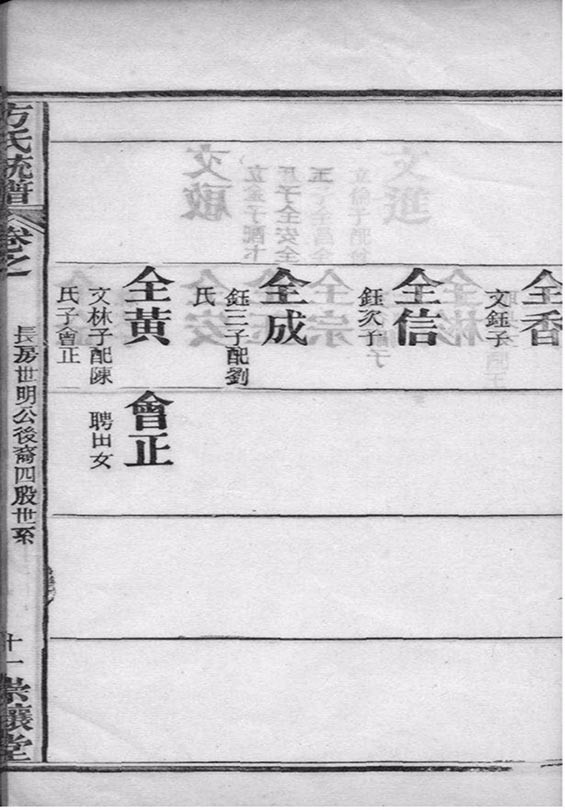 全香
文鈺子
全信
鈺次子
全成
鈺三子配劉
氏
全黃
文林子配陳
氏子會正
會正
聘田女
方氏統譜
卷之一
長房世明公後裔四股世系
十一
崇讓堂